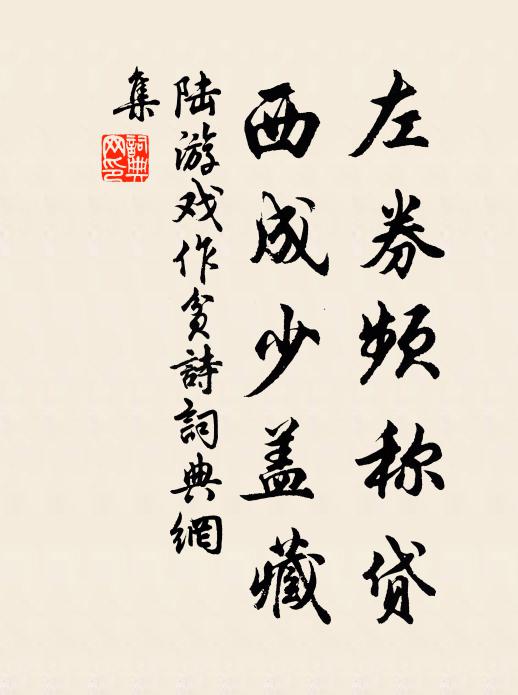 左券频称贷
西成少盖藏
陆游戏作贫詩詞典網
集
詞典网印